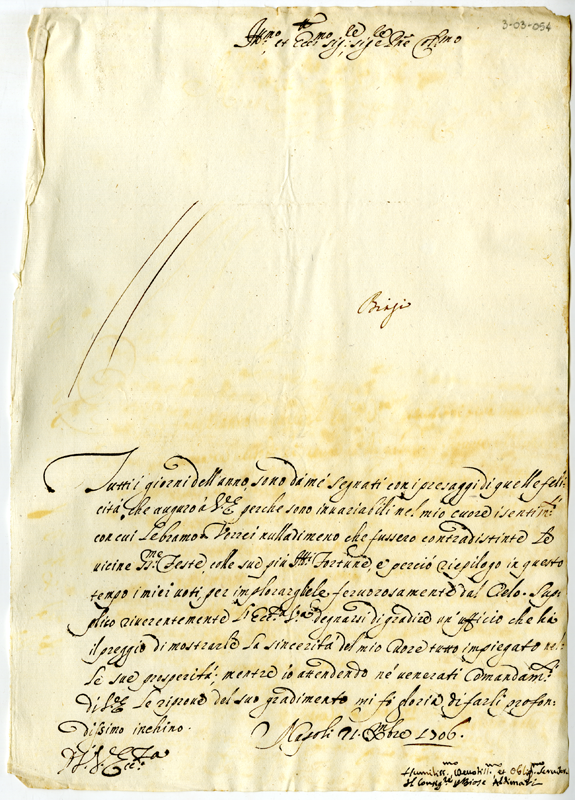 3-03-054
Ill.mo et Ecc.mo Sig.re Sig.re e P.ne Col.mo
Biagi
Tutti i giorni dell'anno, sono da mè segnati con i presaggi di quelle feli=
cità, che auguro à V.E. perche sono invariabili nel mio cuore i sentim.ti
con cui le bramo. Vorrei nulladimeno che fussero contradistinte le
vicine SS.me Feste, colle sue più Fortune, e perciò riepilogo in questo
tempo i miei voti, per implorarghele fervorosamente dal Cielo. Sup=
plico riverentemente l'Ecc.za V.ra degnarsi di gradire un'ufficio che hà
il preggio di mostrarle la sincerità del mio Core tutto impiegato nel=
le sue prosperità, mentre io attendendo ne' venerati Comandam.ti
di V.E. le riprove del suo gradimento mi fò gloria di farli profon=
dissimo inchino. Napoli 21 Xmbre 1706.
V.ra Ecc.za
Humiliss.mo Devotiss.mo et Oblig.mo Servitore
Il Consig.re Biase Altimari